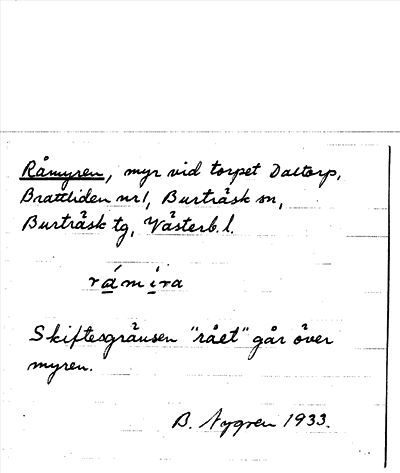 Råmyren, myr vid torpet Daltorp,
Brattliden nr 1, Burträsk sn,
Burträsk tg, Västerb. l.
råmira
Skiftesgränsen "rået" går över
myren.
B. Nygren 1933.